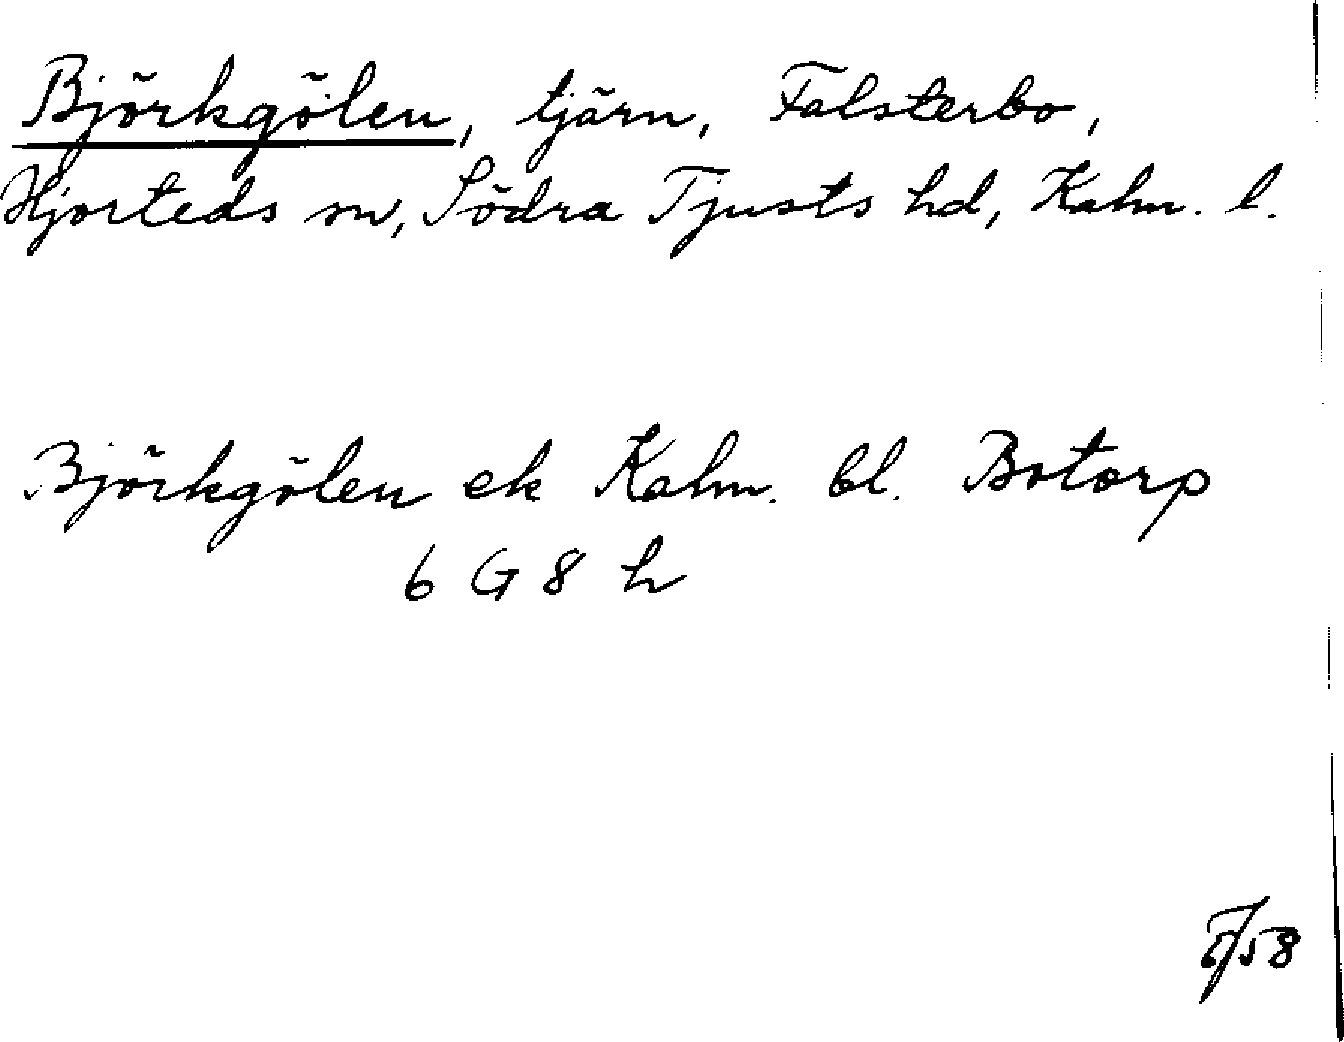 Björkgölen, tjärn, Falsterbo,
Hjorteds sn, Södra Tjusts hd, Kalm. l.
Björkgölen ek Kalm. bl. Botorp
6 G 8 h